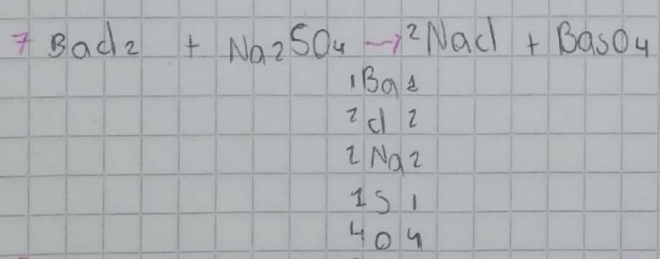 7 BaCl2 + Na2SO4 → 2NaCl + BaSO4
1 Ba 1
2 Cl 2
2 Na 2
1 S 1
4 O 4